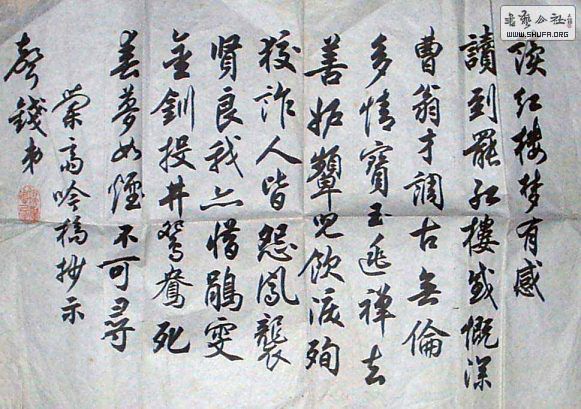 书艺公社
WWW.SHUFA.ORG
读红楼梦有感
讀到罷红樓感慨深
曹翁才調古無倫
多情寶玉逃禪去
善妒顰兒飲淚殉
狡詐人皆怨鳳襲
賢良我亦惜鵑雯
金釧投井鴛鴦死
春夢如煙不可尋
榮高吟稿抄示
錢弟